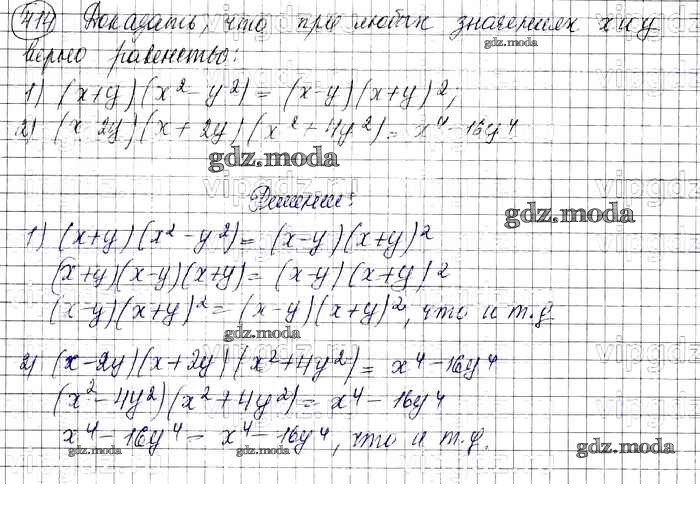 414 Доказать, что при любых значениях x и y
верно равенство:
1) (x+y)(x² - y²) = (x-y)(x+y)²;
2) (x-2y)(x+2y)(x²+4y²) = x⁴-16y⁴
Решение:
1) (x+y)(x²-y²) = (x-y)(x+y)²
(x+y)(x-y)(x+y) = (x-y)(x+y)²
(x-y)(x+y)² = (x-y)(x+y)², что и т.д
2) (x-2y)(x+2y)(x²+4y²) = x⁴-16y⁴
(x²-4y²)(x²+4y²) = x⁴-16y⁴
x⁴-16y⁴ = x⁴-16y⁴, что и т.д.
gdz.moda
gdz.moda
gdz.moda
gdz.moda
gdz.moda
gdz.moda
gdz.moda